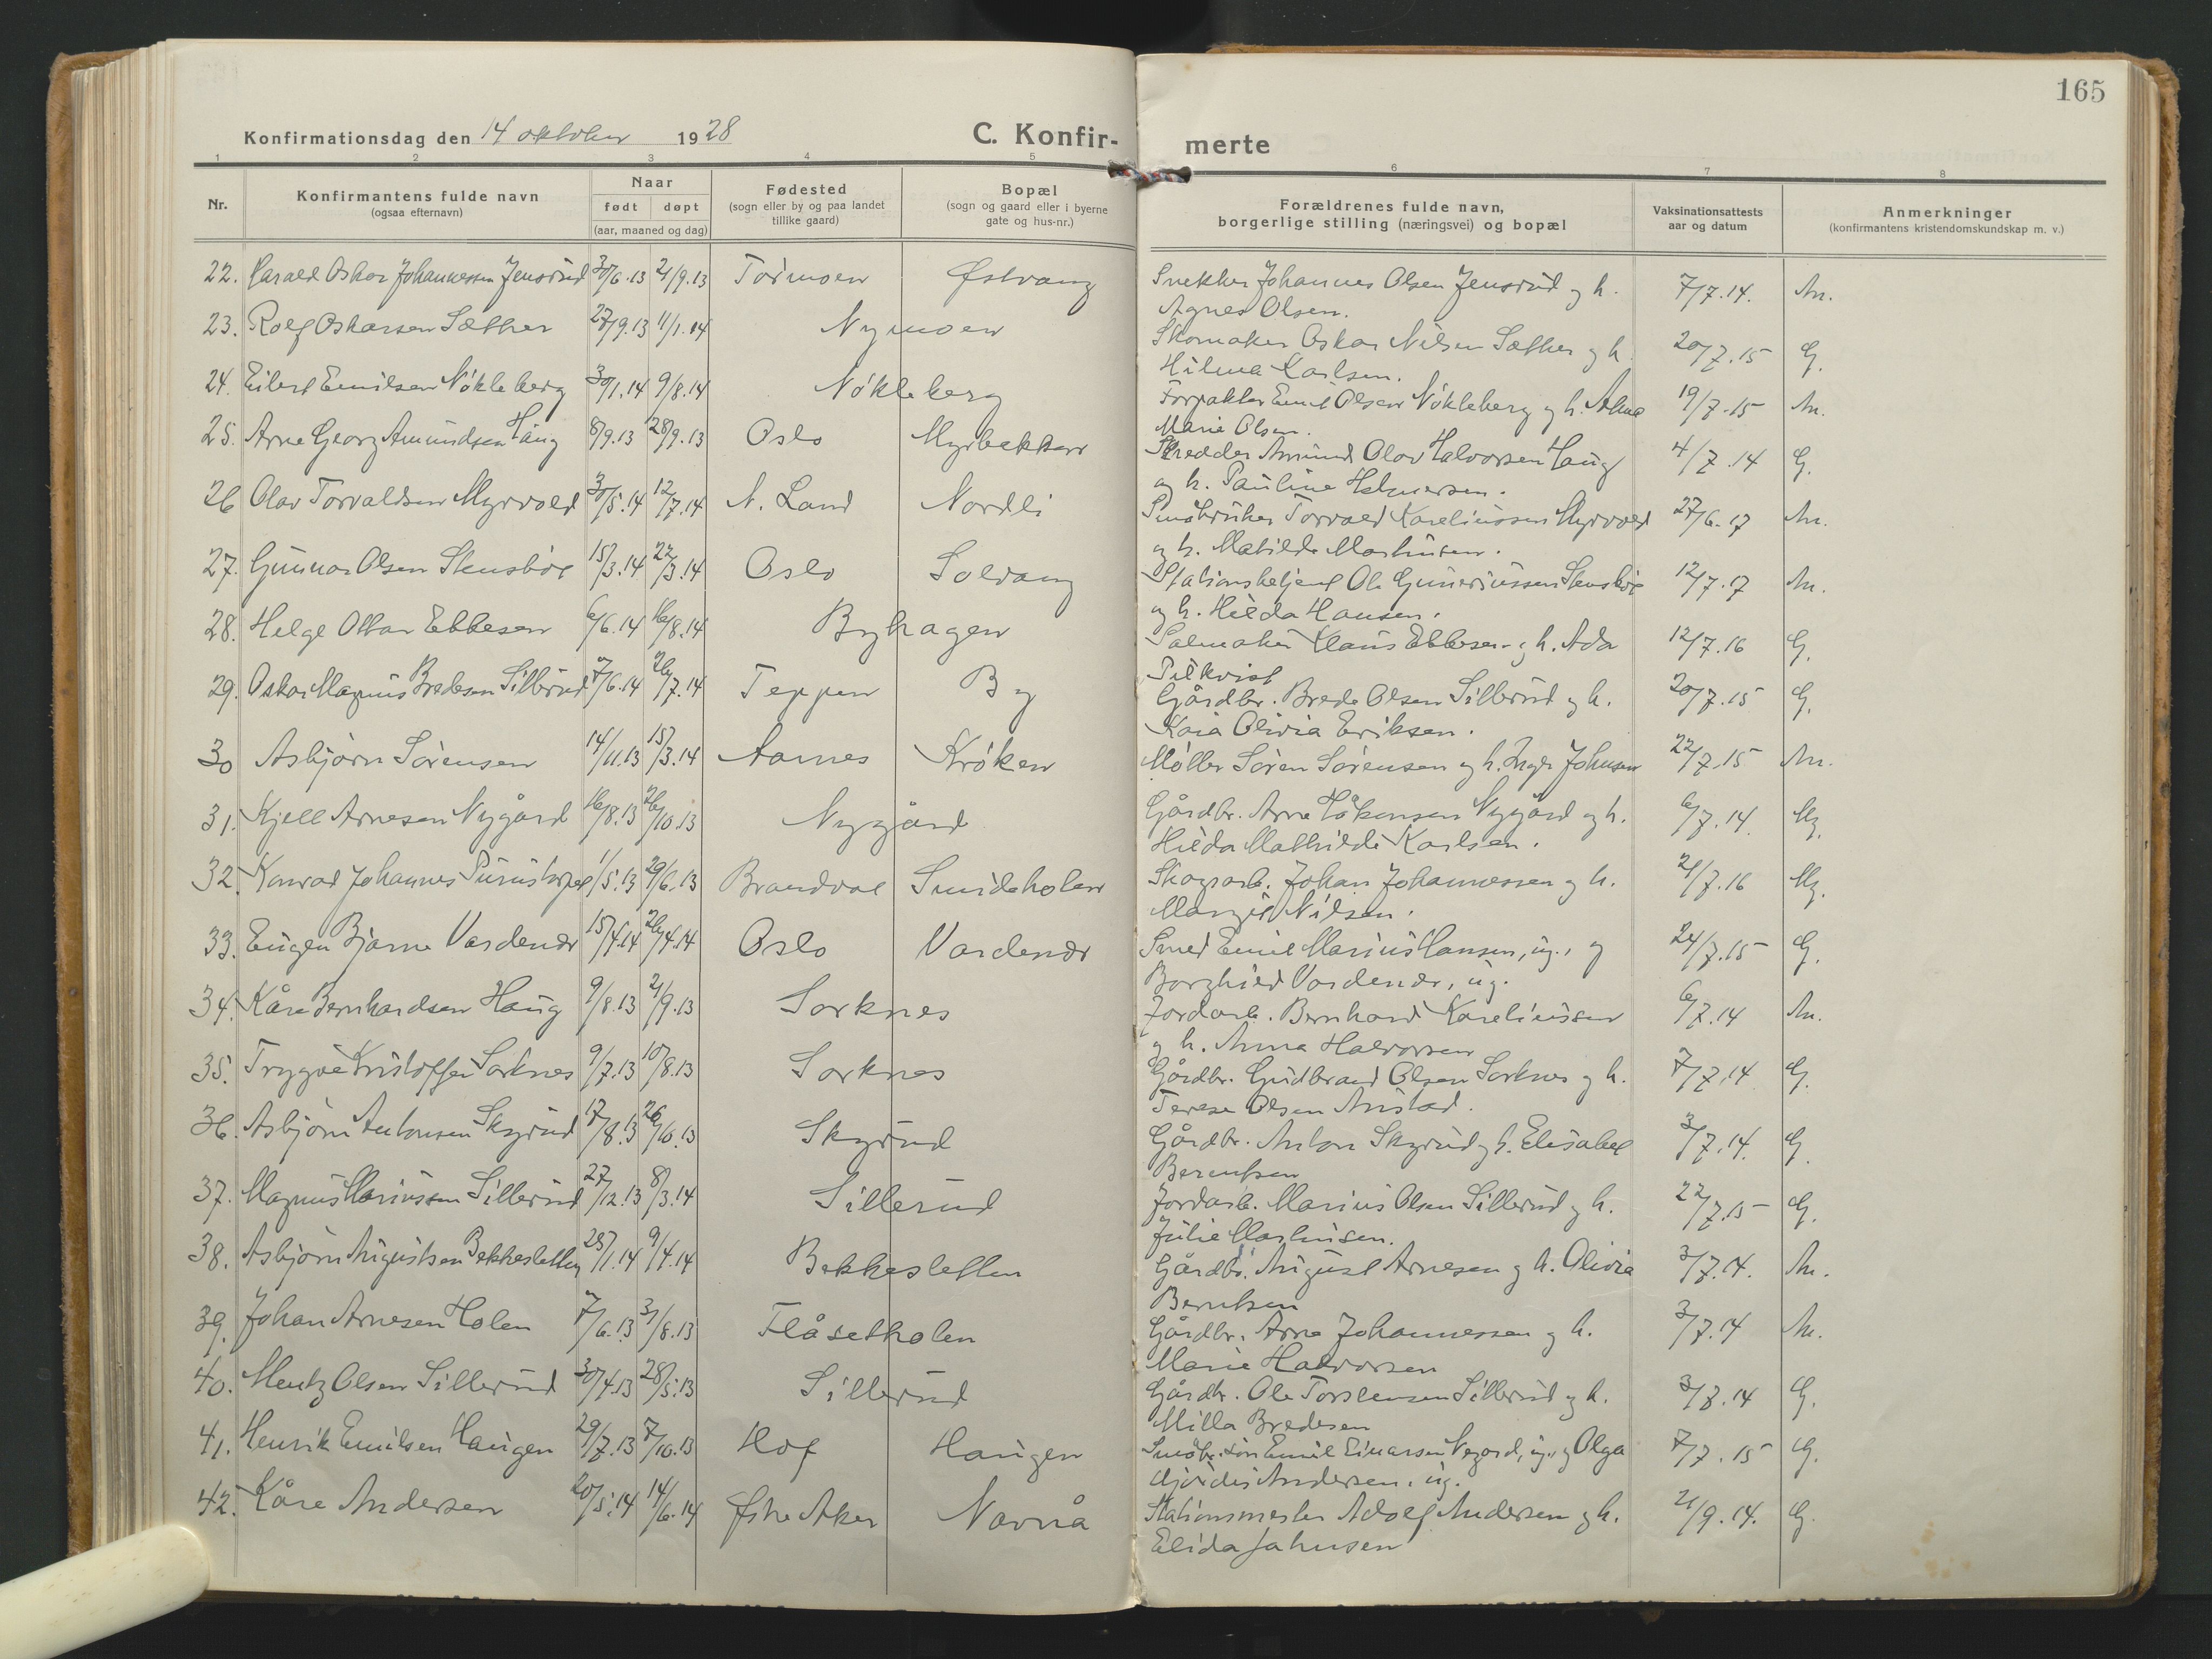 165
Konfirmationsdag den 14 oktober 1928
C. Konfir-
merte
1 2 3 4 5 6 7 8
Nr.
Konfirmantens fulde navn
(ogsaa efternavn)
Naar
født døpt
(aar, maaned og dag)
Fødested
(sogn eller by og paa landet
tillike gaard)
Bopæl
(sogn og gaard eller i byerne
gate og hus-nr.)
Forældrenes fulde navn,
borgerlige stilling (næringsvei) og bopæl
Vaksinationsattests
aar og datum
Anmerkninger
(konfirmantens kristendomskundskap m. v.)
22. Harald Oskar Johannessen Jensrud 30/6.13 21/9.13 Tørmoen Østvang Snekker Johannes Olsen Jensrud og h. 7/7.14. M.
Agnes Olsen.
23. Rolf Oskarsen Sæther 27/9.13 11/1.14 Nymoen Skomaker Oskar Nilsen Sæther og h. 20/7.15 G.
Hilma Karlsen.
24. Eilert Emilsen Nøkleberg 30/1.14 9/8.14 Nøkleberg Forpakter Emil Olsen Nøkleberg og h. Alma 19/7.15 M.
Marie Olsen.
25. Arne Georg Amundsen Haug 8/9.13 28/9.13 Oslo Myrbakken Skredder Amund Olav Halvorsen Haug 4/7.14 G.
og h. Pauline Halmersen.
26 Olav Torvaldsen Myrvold 30/5.14 12/7.14 N. Land Nordli Småbruker Torvald Kareliussen Myrvold 27/6.17 M.
og h. Matilde Martinsen.
27. Gunnar Olsen Stensbøl 15/3.14 22/3.14 Oslo Solvang Stationsbetjent Ole Guneriussen Stensbøl 12/7.17 M.
og h. Hilda Hansen.
28. Helge Ottar Ebbesen 6/6.14 16/8.14 Byhagen Salmaker Klaus Ebbesen og h. Ada 12/7.16 G.
Pilkvist
29. Oskar Magnus Bredesen Sillerud 7/6.14 26/7.14 Teppen By Gårdbr. Brede Olsen Sillerud og h. 20/7.15 G.
Kaia Olivia Eriksen.
30 Asbjørn Sørensen 14/11.13 15/3.14 Aarnes Krøken Møller Søren Sørensen og h. Inga Johnsen 22/7.15 M.
31. Kjell Arnesen Nygård 16/8.13 26/10.13 Nygård Gårdbr. Arne Håkensen Nygård og h. 6/7.14 Mg.
Hilda Mathilde Karlsen.
32. Konrad Johannes Purustorpet 1/5.13 29/6.13 Brandval Smideholen Skogsarb. Johan Johannessen og h. 21/7.16 Mg.
Margit Nilsen.
33. Eugen Bjarne Vardenær 15/4.14 26/4.14 Oslo Vardenær Smed Emil Marius Hansen, ug., og 24/7.15 G.
Borghild Vardenær, ug.
34. Kåre Bernhardsen Haug 9/8.13 21/9.13 Sorknes Jordarb. Bernhard Kareliussen 6/7.14 M.
og h. Anna Halvorsen
35. Trygve Kristoffer Sorknes 9/7.13 10/8.13 Sorknes Gårdbr. Gudbrand Olsen Sorknes og h. 7/7.14 G.
Terese Olsen Anstad.
36. Asbjørn Antonsen Skyrud 17/8.13 26/10.13 Skyrud Gårdbr. Anton Skyrud og h. Elisabet 3/7.14. G.
Berentsen
37. Magnus Mariussen Sillerud 27/12.13 8/3.14 Sillerud Jordarb. Marius Olsen Sillerud og h. 22/7.15 G.
Julie Martinsen.
38. Asbjørn Augustsen Bekkesletten 28/1.14 9/4.14 Bekkesletten Gårdbr. August Arnesen og h. Olivia 3/7.14. M.
Berntsen
39. Johan Arnesen Holen 7/6.13 31/8.13 Flåsetholen Gårdbr. Arne Johannessen og h. 3/7.14 M.
Marie Halvorsen
40. Mentz Olsen Sillerud 30/4.13 28/5.13 Sillerud Gårdbr. Ole Torstensen Sillerud og h. 3/8.14 G.
Milla Bredesen
41. Henrik Emilsen Haugen 29/7.13 7/10.13 Hof Haugen Småbr.søn Emil Einarsen Negård, ug., og Olga 7/7.15 G.
Hjørdis Andersen, ug.
42. Kåre Andersen 20/5.14 14/6.14 Østre Aker Navnå Stationsmester Adolf Andersen og h. 21/9.14. G.
Elida Jahnsen